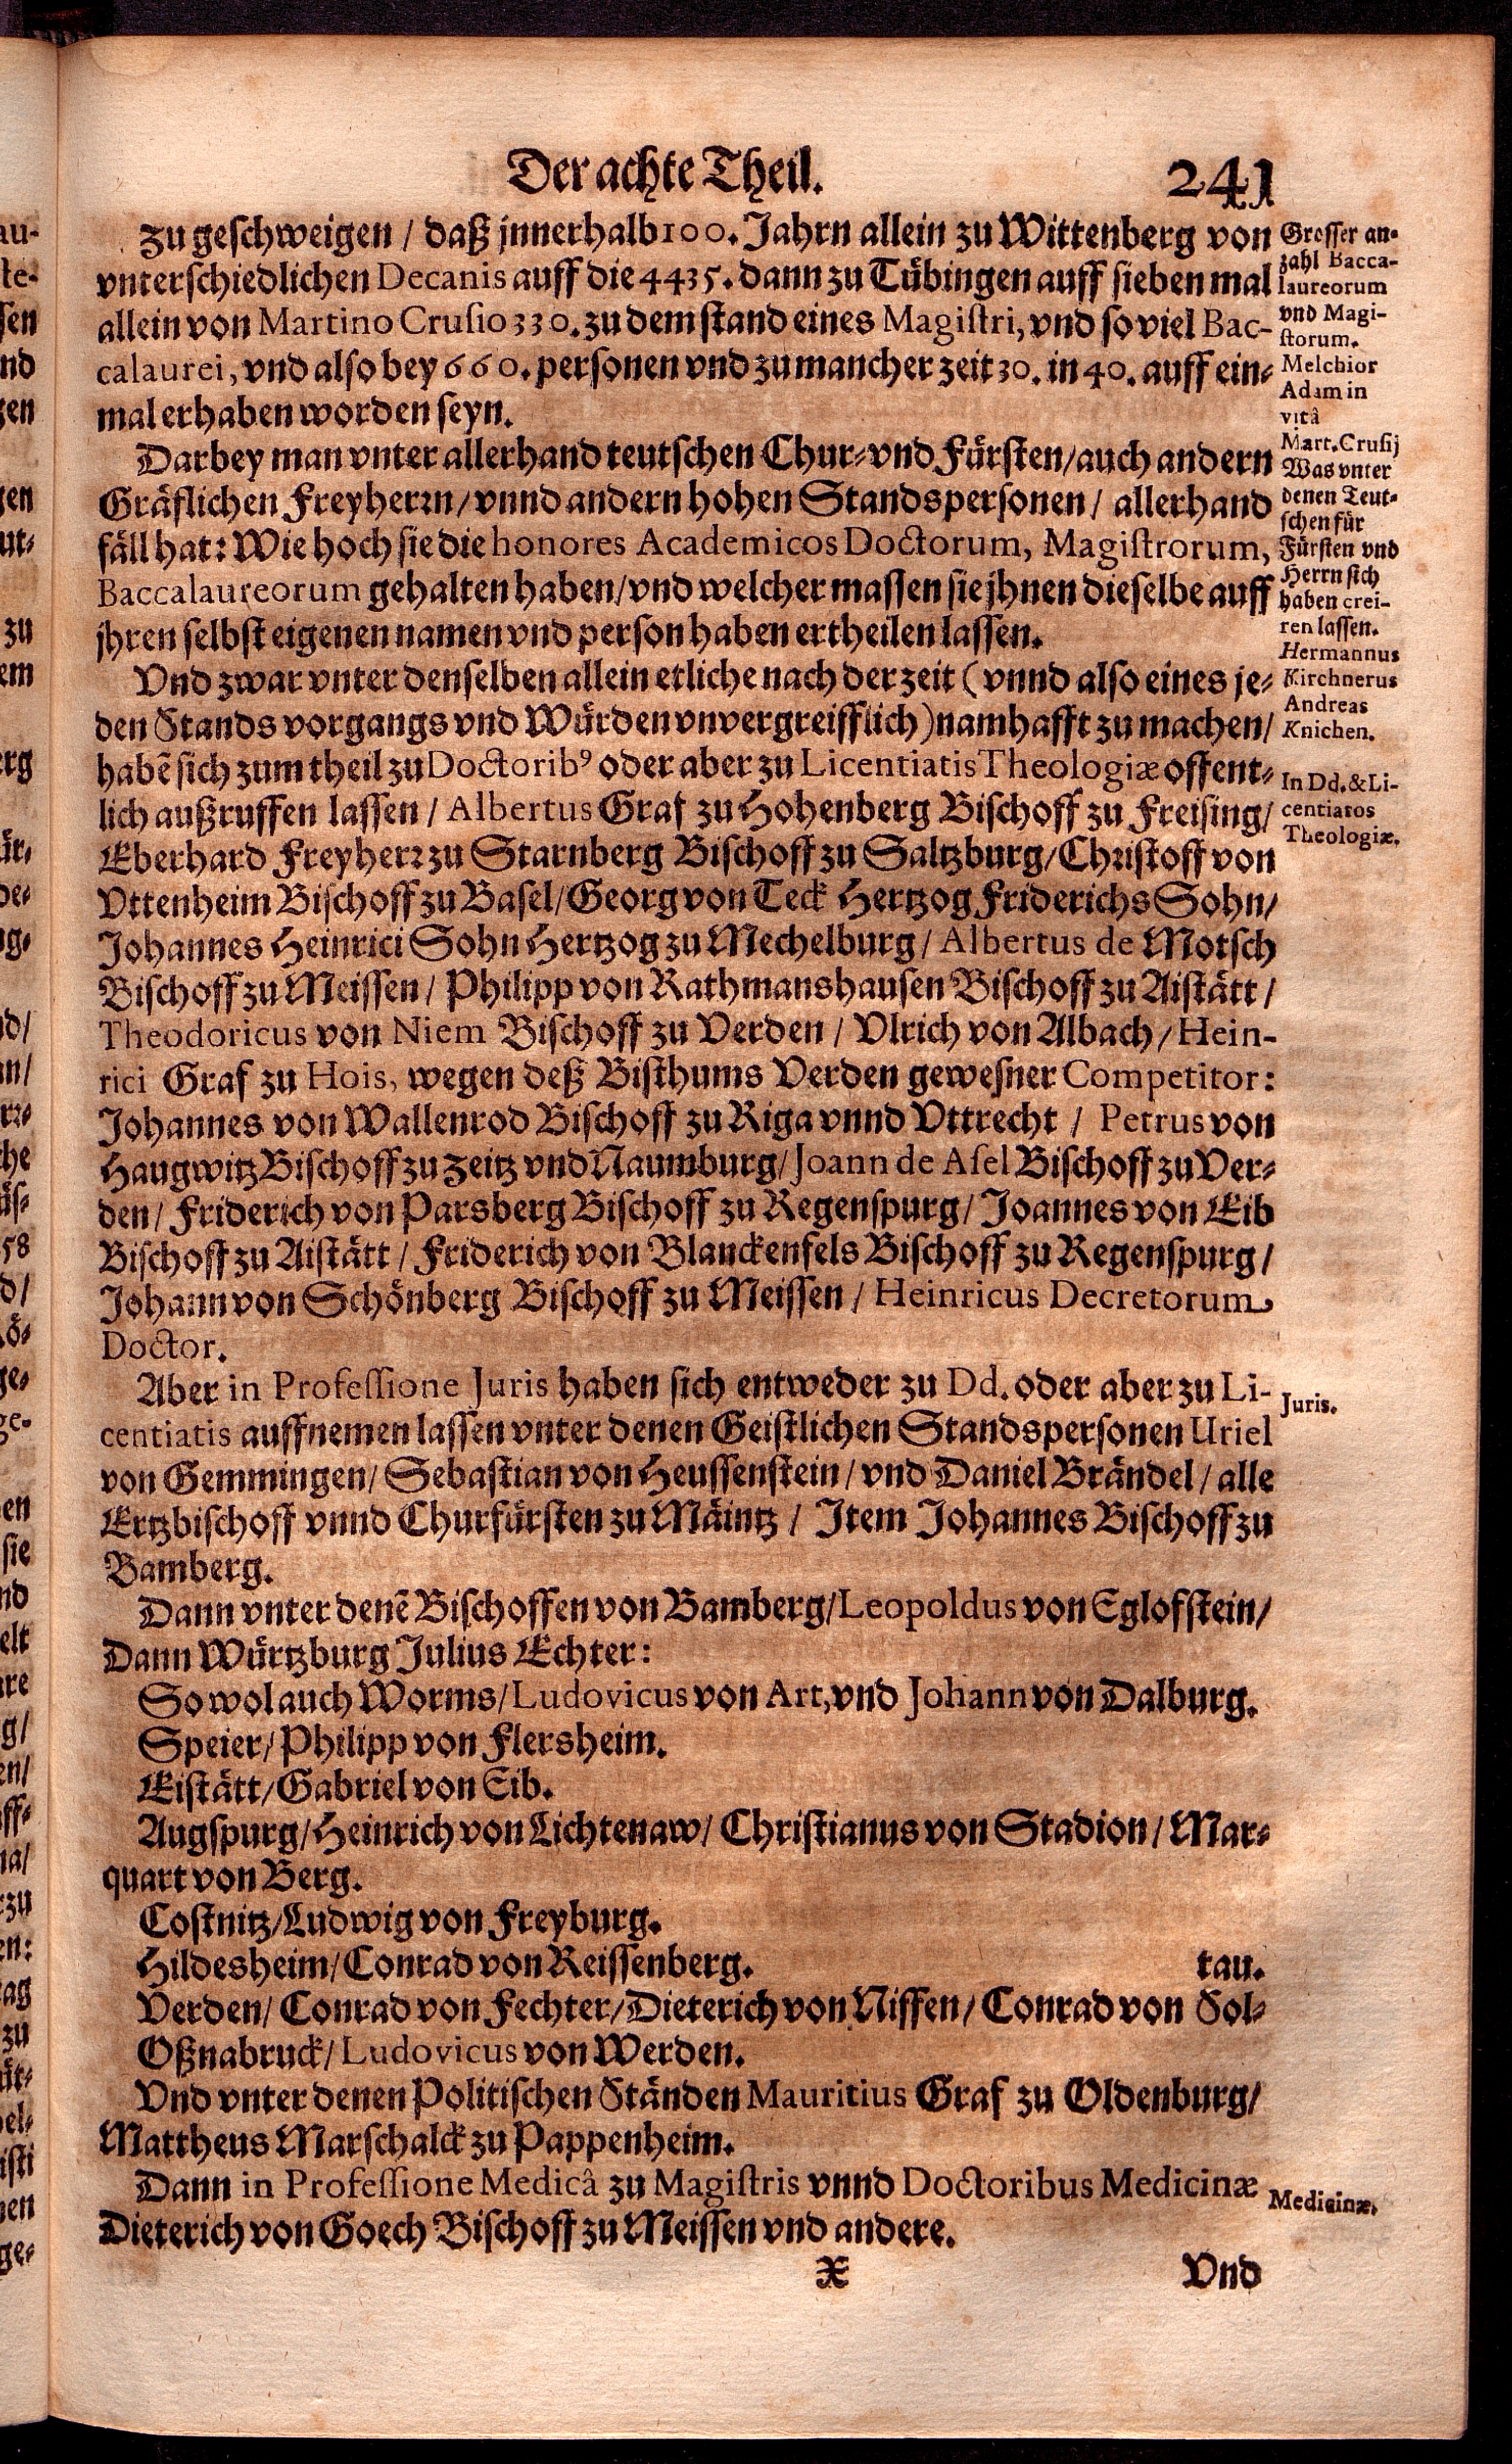 Der achte Theil. 241
Zu geschweigen / daß jnnerhalb 100. Jahrn allein zu Wittenberg von
vnterschiedlichen Decanis auff die 4435. dann zu Tübingen auff sieben mal
allein von Martino Crusio 330. zu dem stand eines Magistri, vnd so viel Bac-
calaurei, vnd also bey 660. personen vnd zu mancher zeit 30. in 40. auff ein-
mal erhaben worden seyn.
Grosser an-
zahl Bacca-
laureorum
vnd Magi-
storum.
Melchior
Adam in
vitâ
Mart. Crusij
Darbey man vnter allerhand teutschen Chur- vnd Fürsten/ auch andern
Gräflichen Freyherrn/ vnnd andern hohen Standspersonen / allerhand
fäll hat: Wie hoch sie die honores Academicos Doctorum, Magistrorum,
Baccalaureorum gehalten haben/ vnd welcher massen sie jhnen dieselbe auff
jhren selbst eigenen namen vnd person haben ertheilen lassen.
Was vnter
denen Teut-
schen für
Fürsten vnd
Herrn sich
haben crei-
ren lassen.
Hermannus
Kirchnerus
Andreas
Knichen.
Vnd zwar vnter denselben allein etliche nach der zeit ( vnnd also eines je-
den Stands vorgangs vnd Würden vnvergreifflich) namhafft zu machen/
habẽ sich zum theil zu Doctoribꝰ oder aber zu Licentiatis Theologiæ offent-
lich außruffen lassen / Albertus Graf zu Hohenberg Bischoff zu Freising/
Eberhard Freyherr zu Starnberg Bischoff zu Saltzburg/ Christoff von
Vttenheim Bischoff zu Basel/ Georg von Teck Hertzog Friderichs Sohn/
Johannes Heinrici Sohn Hertzog zu Mechelburg / Albertus de Motsch
Bischoff zu Meissen / Philipp von Rathmanshausen Bischoff zu Aistätt /
Theodoricus von Niem Bischoff zu Verden / Vlrich von Albach / Hein-
rici Graf zu Hois, wegen deß Bisthums Verden gewesner Competitor:
Johannes von Wallenrod Bischoff zu Riga vnnd Vttrecht / Petrus von
Haugwitz Bischoff zu Zeitz vnd Naumburg/ Joann de Asel Bischoff zu Ver-
den / Friderich von Parsberg Bischoff zu Regenspurg / Joannes von Eib
Bischoff zu Aistätt / Friderich von Blanckenfels Bischoff zu Regenspurg /
Johann von Schönberg Bischoff zu Meissen / Heinricus Decretorum
Doctor.
In Dd. & Li-
centiatos
Theologiæ.
Aber in Professione Juris haben sich entweder zu Dd. oder aber zu Li-
centiatis auffnemen lassen vnter denen Geistlichen Standspersonen Uriel
von Gemmingen/ Sebastian von Heussenstein / vnd Daniel Brändel / alle
Ertzbischoff vnnd Churfürsten zu Mäintz / Item Johannes Bischoff zu
Bamberg.
Juris.
Dann vnter denẽ Bischoffen von Bamberg/ Leopoldus von Eglofstein/
Dann Würtzburg Julius Echter:
So wol auch Worms/ Ludovicus von Art, vnd Johann von Dalburg.
Speier/ Philipp von Flersheim.
Eistätt/ Gabriel von Eib.
Augspurg/ Heinrich von Lichtenaw/ Christianus von Stadion / Mar-
quart von Berg.
Costnitz/ Ludwig von Freyburg.
Hildesheim/ Conrad von Reissenberg. tau.
Verden/ Conrad von Fechter/ Dieterich von Niffen/ Conrad von Sol-
Oßnabruck/ Ludovicus von Werden.
Vnd vnter denen Politischen Ständen Mauritius Graf zu Oldenburg/
Mattheus Marschalck zu Pappenheim.
Dann in Professione Medicâ zu Magistris vnnd Doctoribus Medicinæ
Dieterich von Goech Bischoff zu Meissen vnd andere.
Medicinæ.
X Vnd